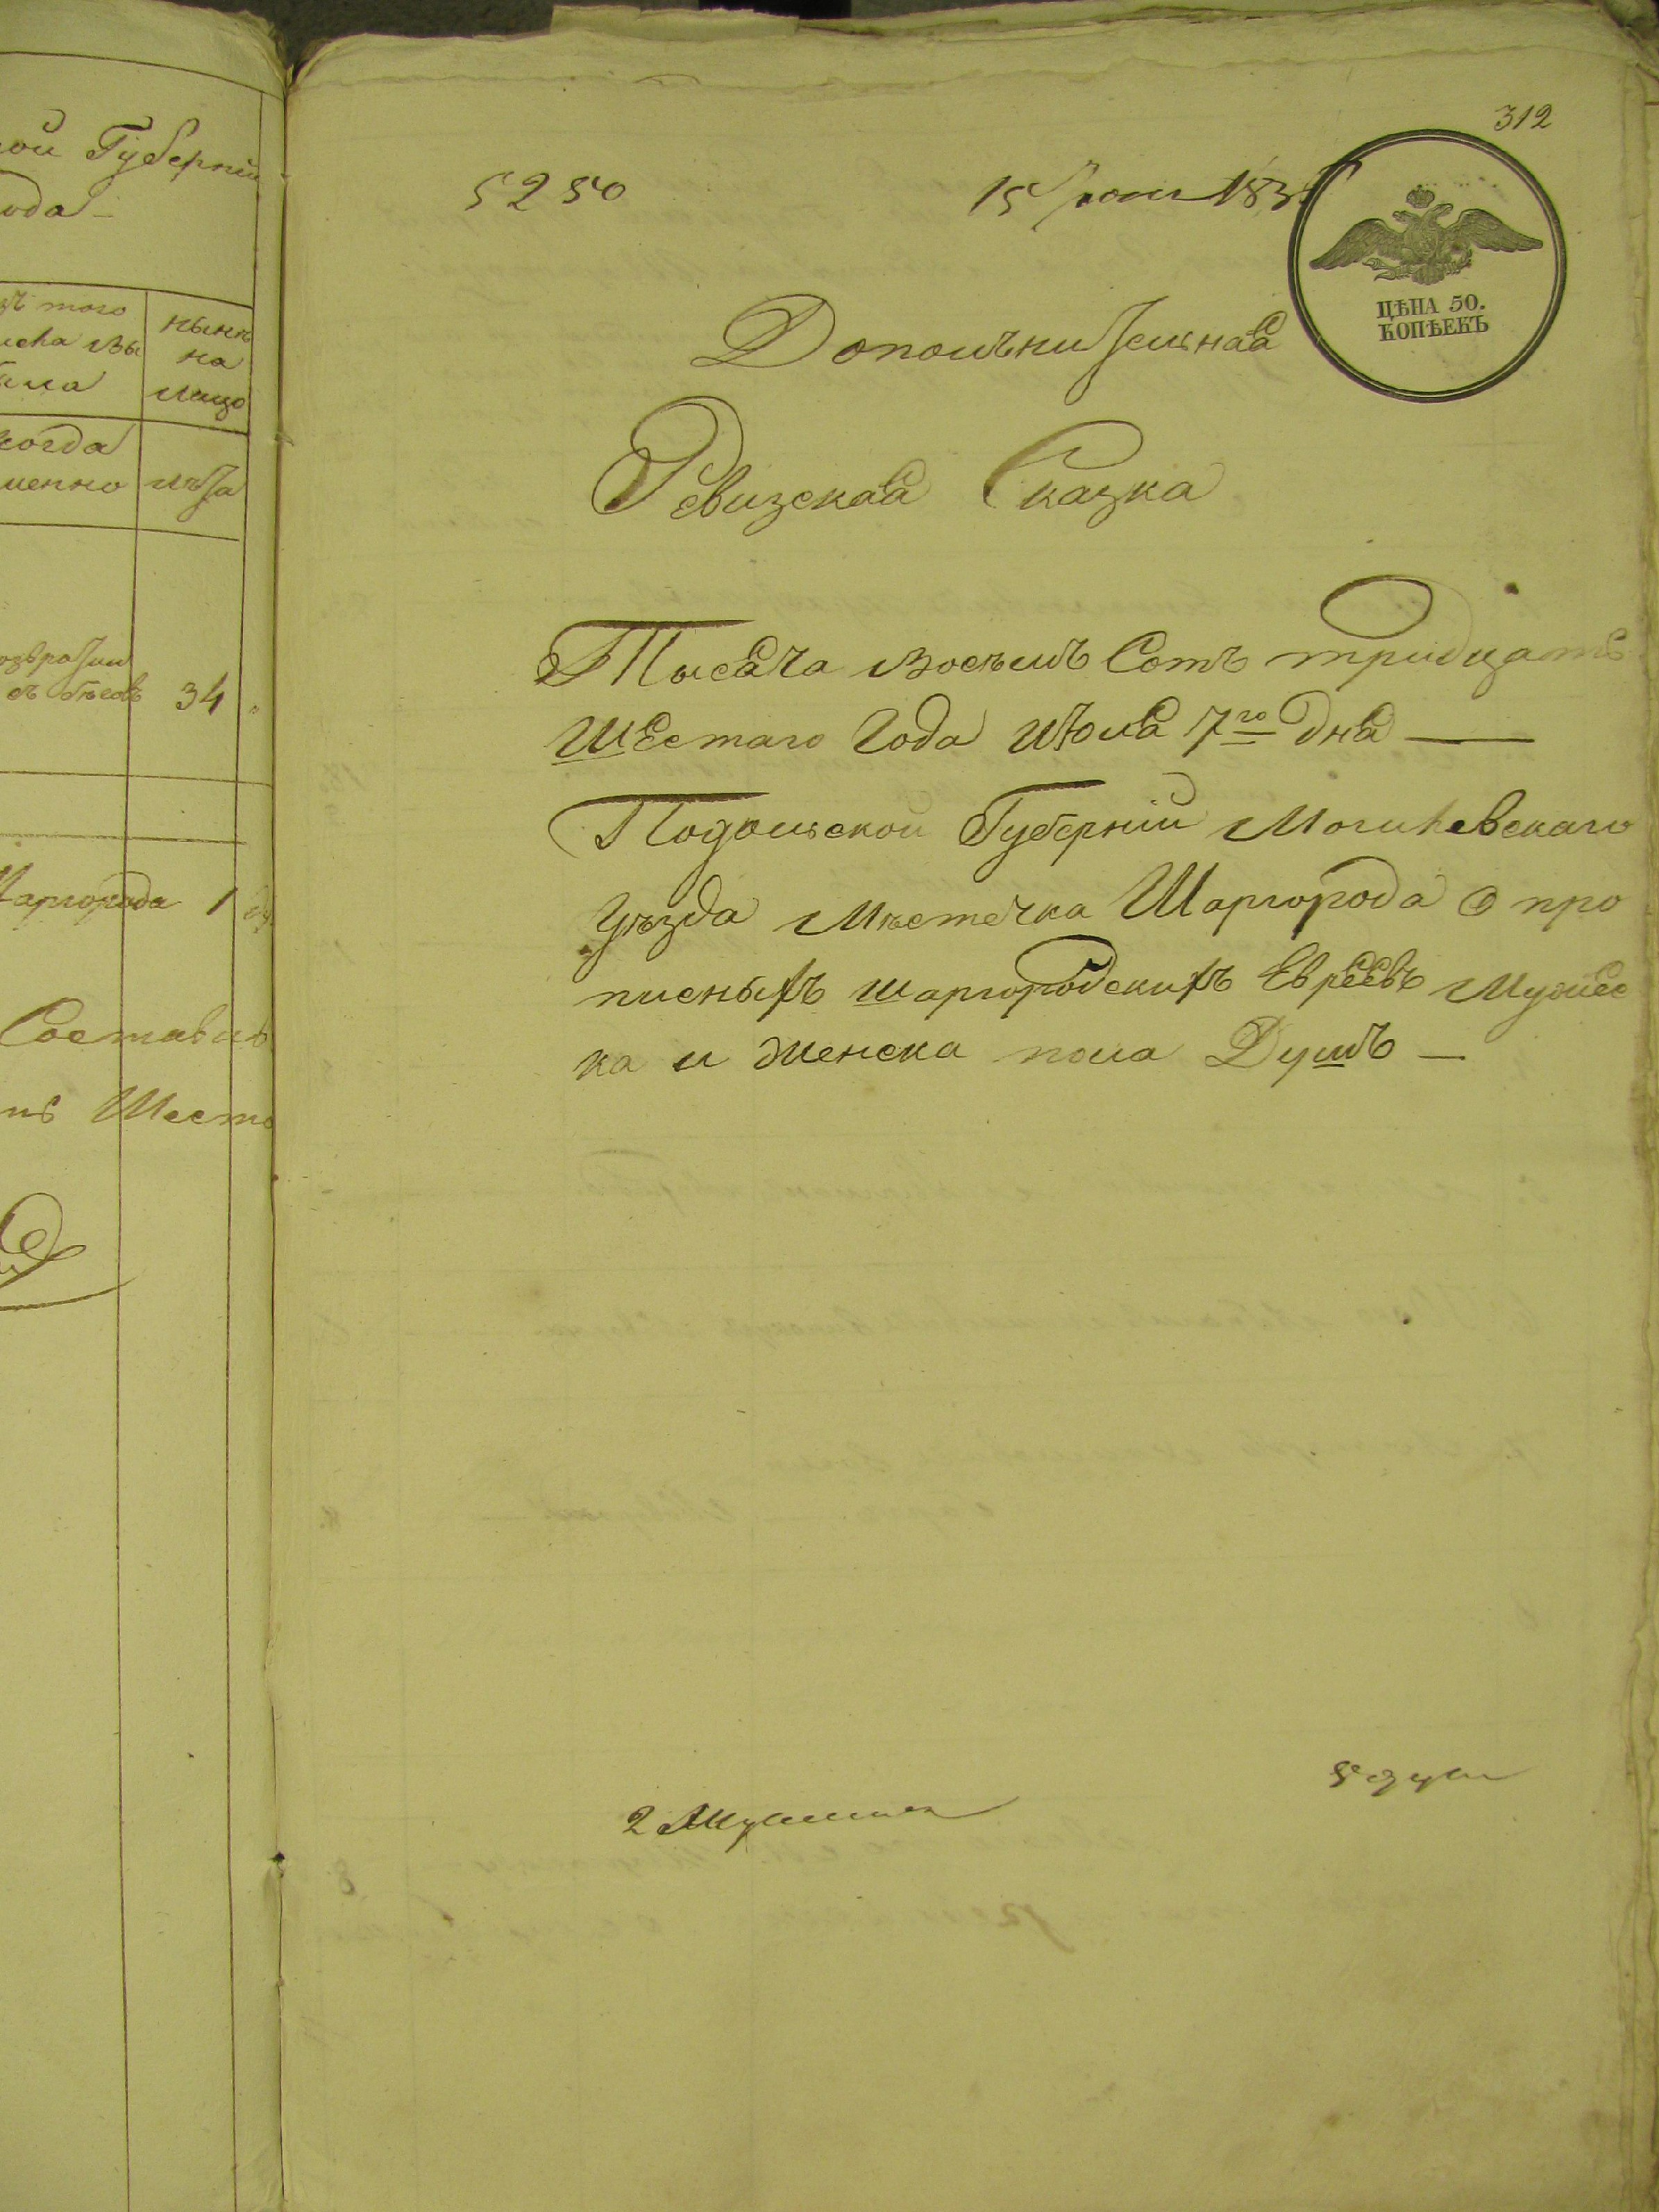 ой Губерніи
ода
нынѣ
на
лицо
когда
именно лѣта
34
Шаргорода 1
Составл
Шесто
312
5250
15 Іюля 183
ЦѢНА 50.
КОПѢЕКЪ
Дополънительная
Ревизская Сказка
Тысяча восемъ Сотъ тридцать
шестаго Года Июля 7го Дня —
Подольской Губерніи Могилевскаго
уѣзда Мѣстечка Шаргорода О про
писныхъ шаргородскихъ Евреевъ Мужес
ка и Женска пола Душъ —
5 душ
2 Мущин